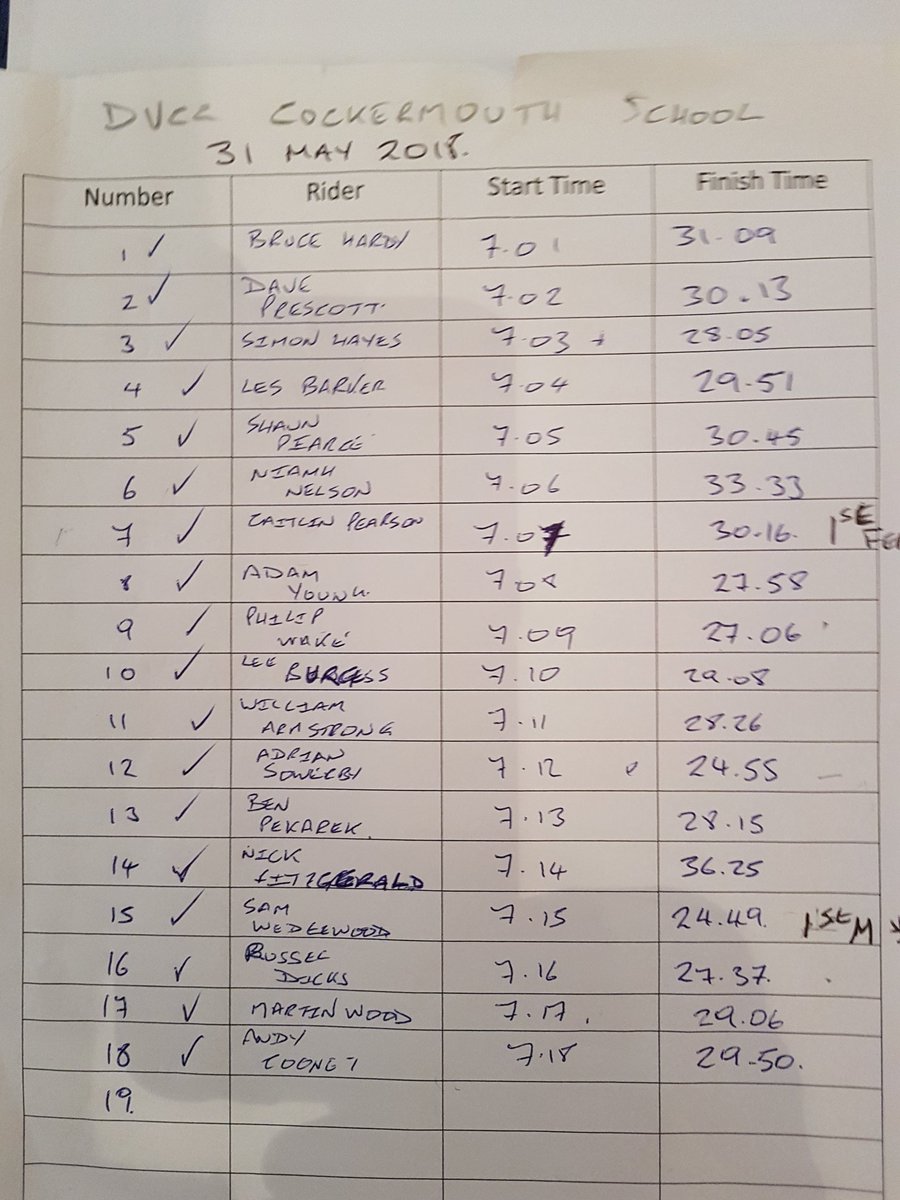 DVCC COCKERMOUTH SCHOOL
31 MAY 2018.
Number Rider Start Time Finish Time
1 ✓ BRUCE HARDY 7.01 31.09
2 ✓ DAVE PRESCOTT 7.02 30.13
3 ✓ SIMON HAYES 7.03 28.05
4 ✓ LES BARKER 7.04 29.51
5 ✓ SHAUN PEARCE 7.05 30.45
6 ✓ NIAMH NELSON 7.06 33.33
7 ✓ CAITLIN PEARSON 7.07 30.16. 1ST FE
8 ✓ ADAM YOUNG. 7.08 27.58
9 ✓ PHILIP WAKE 7.09 27.06
10 ✓ LEE BURGESS 7.10 29.08
11 ✓ WILLIAM ARMSTRONG 7.11 28.26
12 ✓ ADRIAN SOWERBY 7.12 24.55
13 ✓ BEN PEKAREK. 7.13 28.15
14 ✓ NICK FITZGERALD 7.14 36.25
15 ✓ SAM WEDGEWOOD 7.15 24.49. 1ST M
16 ✓ RUSSEL DICKS 7.16 27.37.
17 ✓ MARTIN WOOD 7.17. 29.06
18 ✓ ANDY COONEY 7.18 29.50.
19.